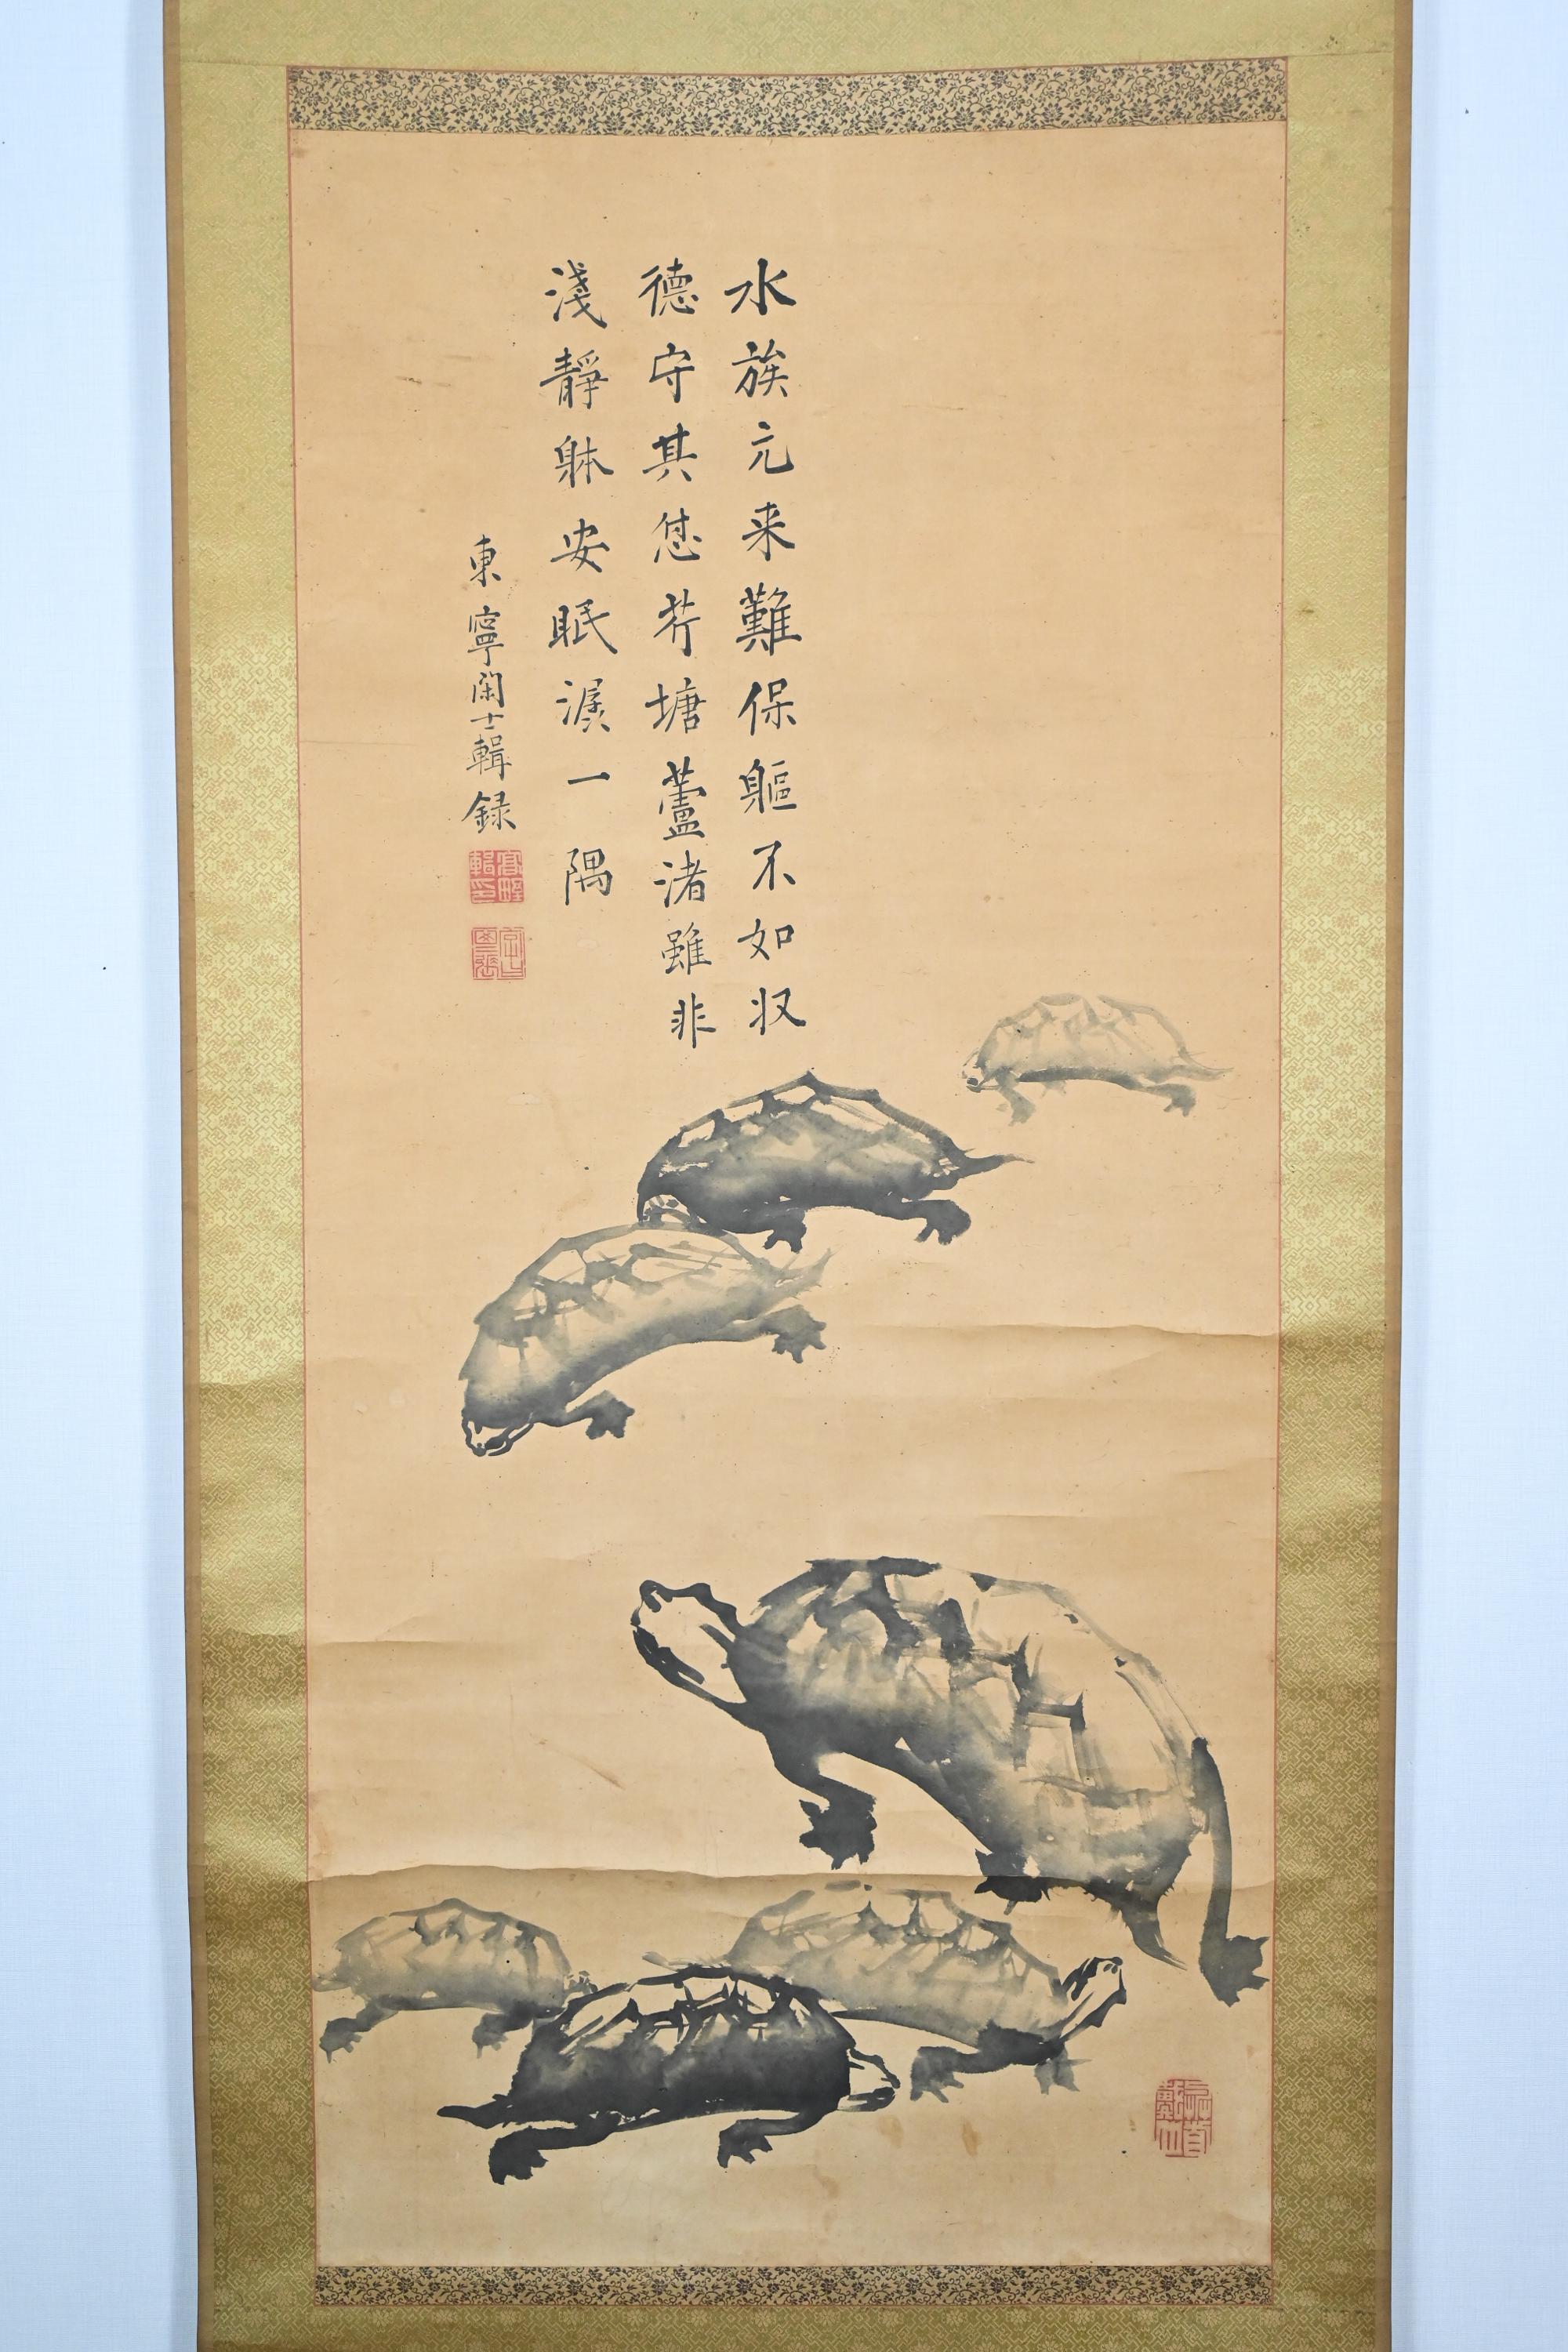 水族元来難保軀不如収
德守其愆芹塘蘆渚雖非
淺靜躰安眠濵一隅
東寧閑士輯録